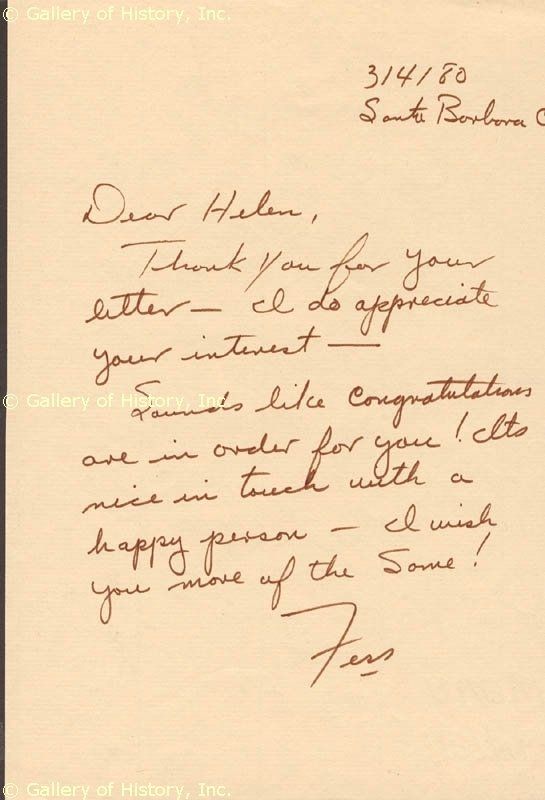 © Gallery of History, Inc.
3/4/80
Santa Barbara C
Dear Helen,
Thank you for your
letter — I do appreciate
your interest —
© Gallery of History, Inc.
Sounds like congratulations
are in order for you! Its
nice in touch with a
happy person — I wish
you more of the Same!
Fess
© Gallery of History, Inc.